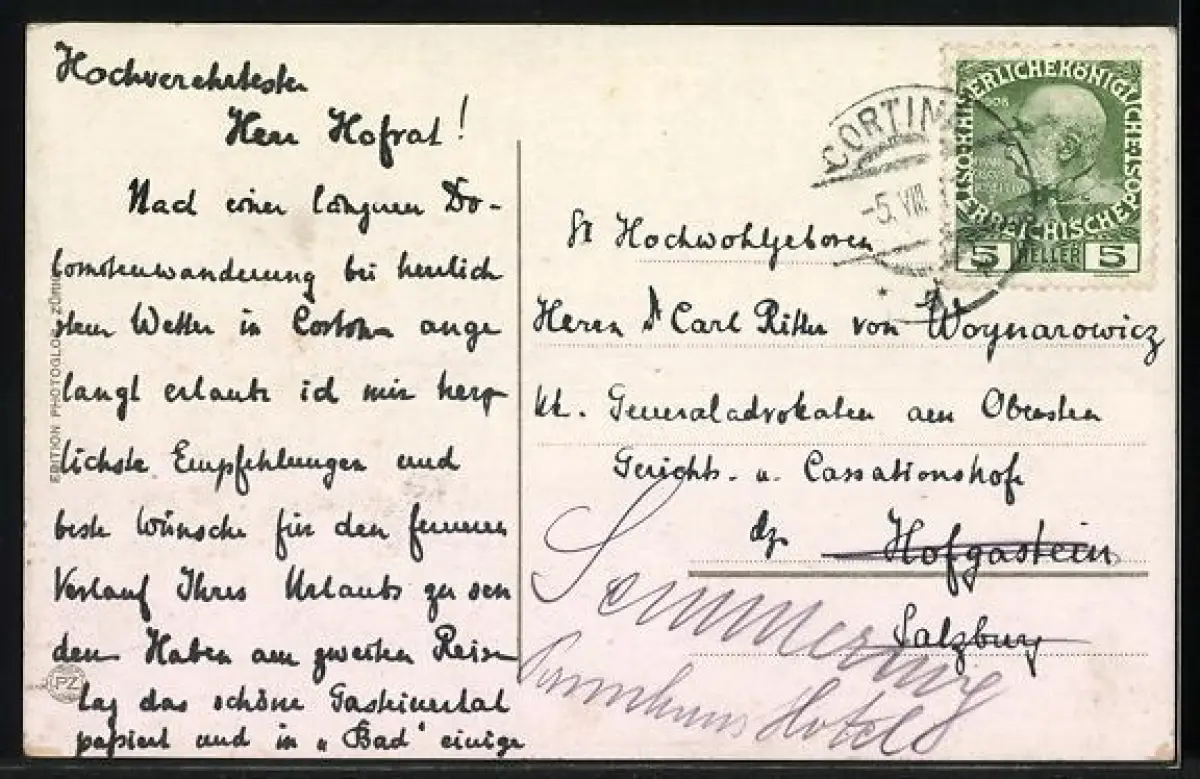 Hochverehrtester
Herr Hofrat!
Nach einer langen Do-
lomitenwanderung bei herrlich
stem Wetter in Cortina ange
langt erlaube ich mir herz
lichste Empfehlungen und
beste Wünsche für den ferneren
Verlauf Ihres Urlaubs zu sen
den. Haben am zweiten Reise
tag das schöne Gasteinertal
passiert und in "Bad" einige
EDITION PHOTOGLOB ZÜRICH
PZ
CORTINA
-5. VIII
KAISERLICHEKÖNIGLICHE ÖSTERREICHISCHE POST
1908
5 HELLER 5
Sr Hochwohlgeboren
Herrn Dr Carl Ritter von Woynarowicz
kk. Generaladvokaten am Obersten
Gerichts- u. Cassationshofe
dz. Hofgastein
Salzburg
Semmering
Hotel